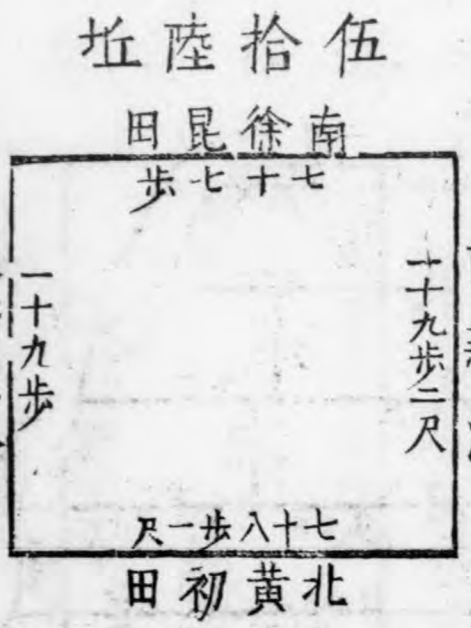 伍拾陸坵
南徐昆田
七十七步
一十九步二尺
一十九步
七十八步一尺
北黄初田